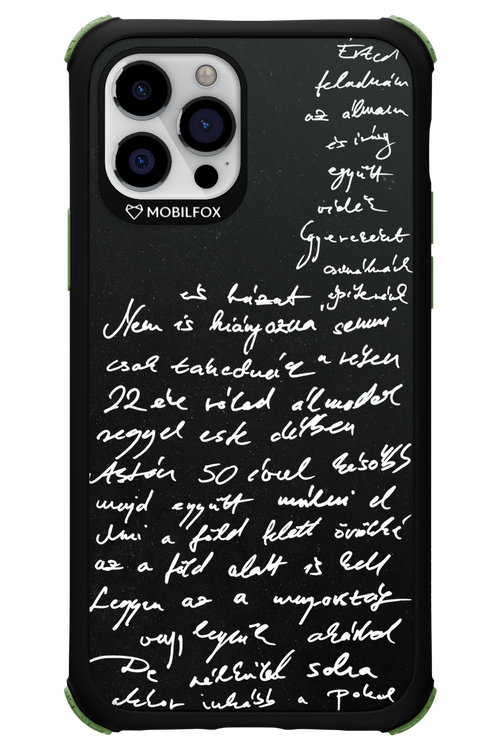 MOBILFOX
Érted
feladnám
az álmaim
és irány
együtt
vidék
Gyereket
csinálnék
és házat építenék
Nem is hiányozna semmi
csak takednék a réten
22 éve rólad álmodok
reggel este délben
Aztán 50 évvel később
majd együtt múlni el
Ami a föld felett örökké
az a föld alatt is kell
Legyen az a mennyország
vagy legyünk akárhol
De nélküled soha
akkor inkább a pokol